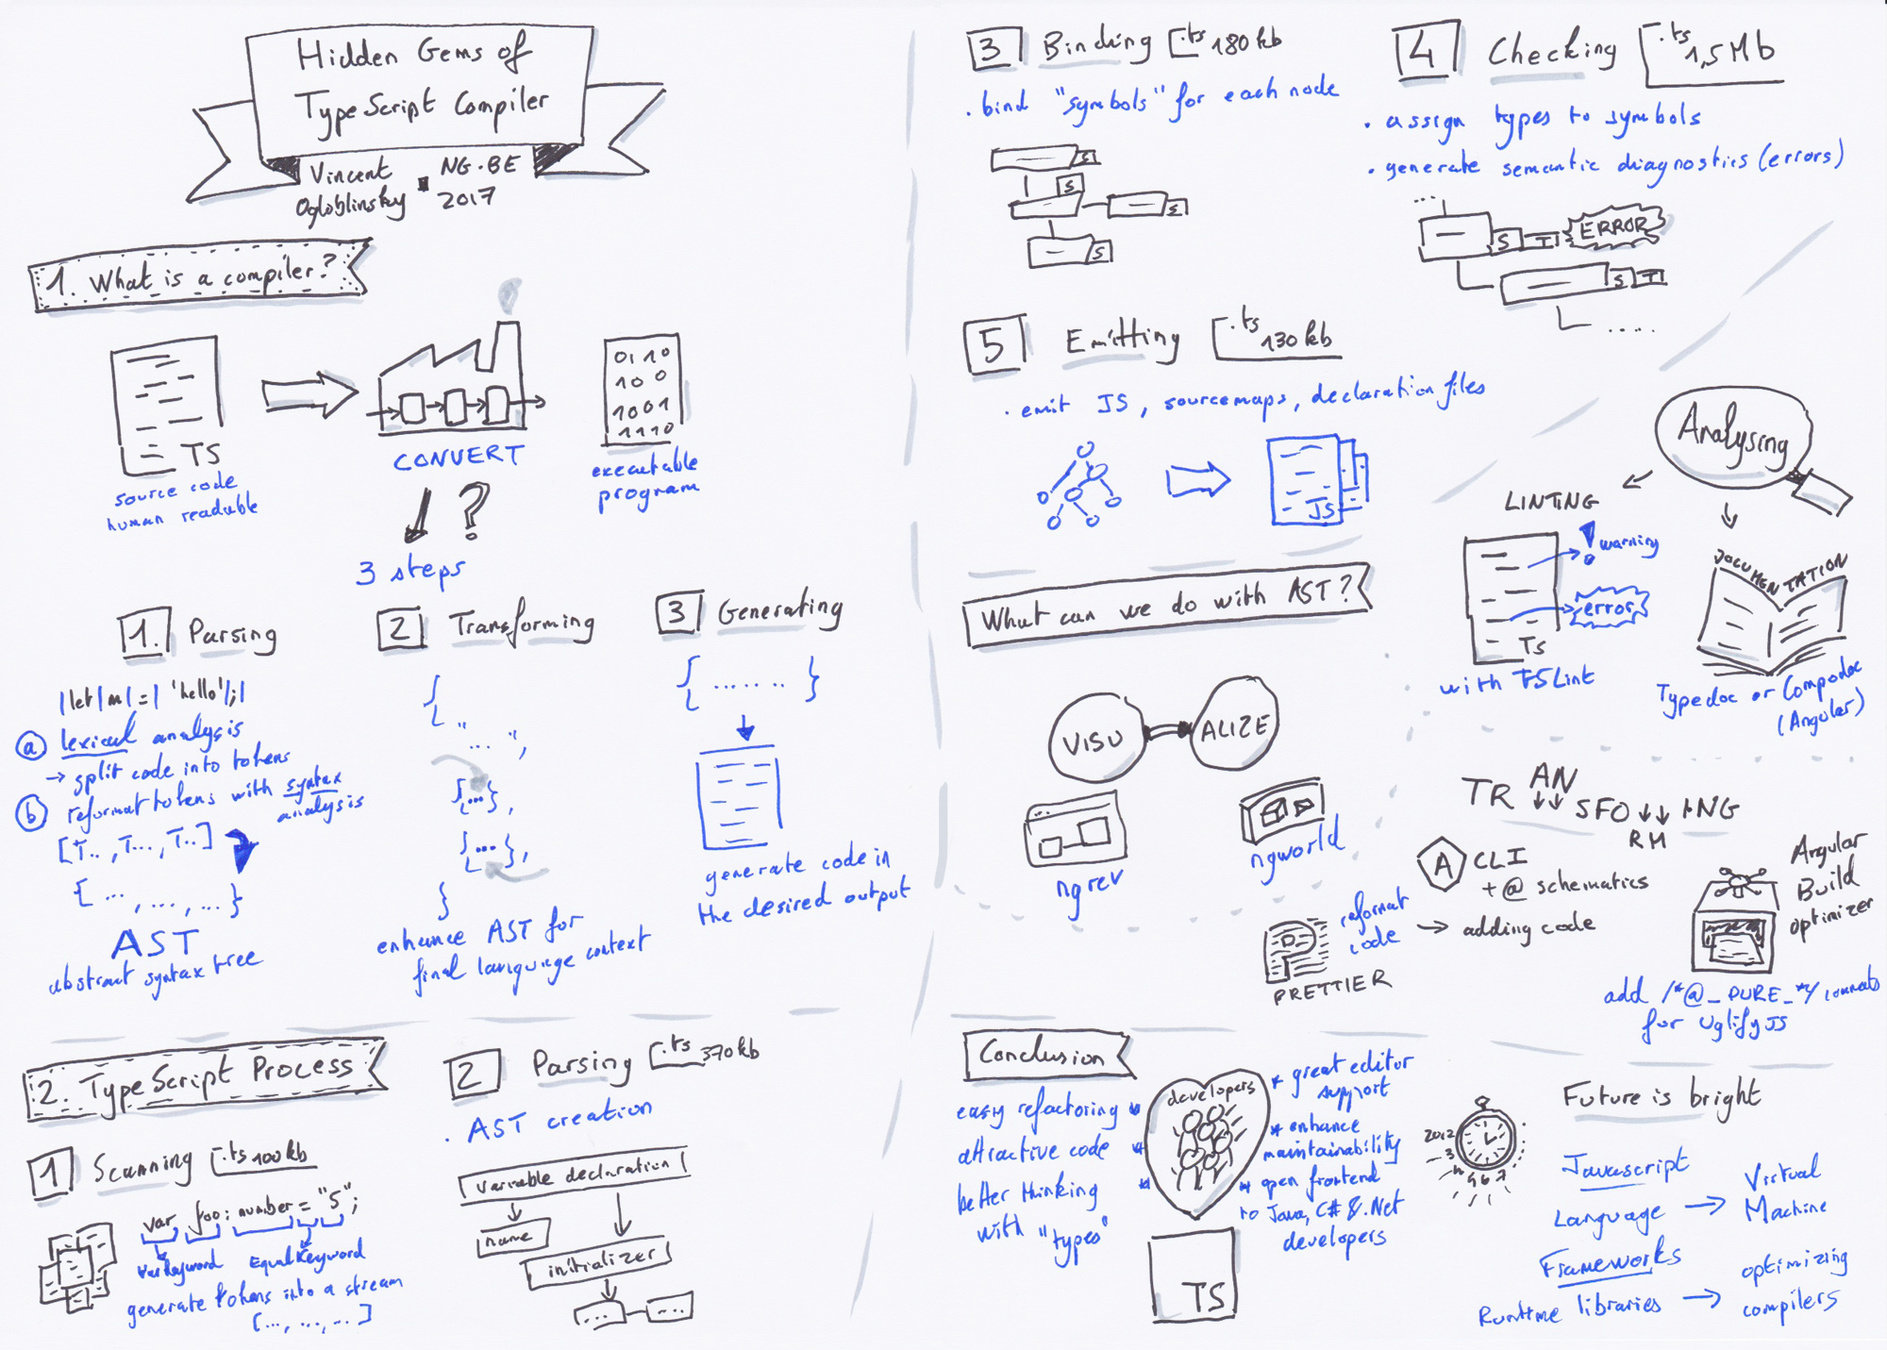 Hidden Gems of
TypeScript Compiler
Vincent
Ogloblinsky
NG-BE
2017
1. What is a compiler?
TS
source code
human readable
CONVERT
?
3 steps
0110
100
1001
1110
executable
program
1. Parsing
|let|m|=| 'hello'|;|
a lexical analysis
→ split code into tokens
b reformat tokens with syntax
analysis
[T.., T..., T..]
{ ... , ..., ... }
AST
abstract syntax tree
2 Transforming
{
" ... ",
{...},
{...},
}
enhance AST for
final language context
3 Generating
{ ....... }
generate code in
the desired output
2. TypeScript Process
1 Scanning .ts 100kb
var foo: number = "5";
VarKeyword EqualKeyword
generate tokens into a stream
[..., ..., ..]
2 Parsing .ts 370kb
. AST creation
variable declaration
name
initializer
... ...
3 Binding .ts 180kb
. bind "symbols" for each node
S
S
S
S
4 Checking .ts 1,5Mb
. assign types to symbols
. generate semantic diagnostics (errors)
...
S T ERROR
S T
.....
5 Emitting .ts 130kb
. emit JS, sourcemaps, declaration files
JS
What can we do with AST?
VISU ALIZE
ngrev
ngworld
Analysing
LINTING
! warning
error
TS
with TSLint
DOCUMENTATION
Typedoc or Compodoc
(Angular)
TR AN SFO RM ING
A CLI
+ @ schematics
→ adding code
P
reformat
code
PRETTIER
Angular
Build
optimizer
add /*@_PURE_*/ comments
for UglifyJS
Conclusion
easy refactoring
attractive code
better thinking
with "types"
developers
* great editor
support
* enhance
maintainability
* open frontend
to Java, C# & .Net
developers
TS
Future is bright
2012
3
4
5 6 7
Javascript
Language → Virtual
Machine
Frameworks
Runtime libraries → optimizing
compilers